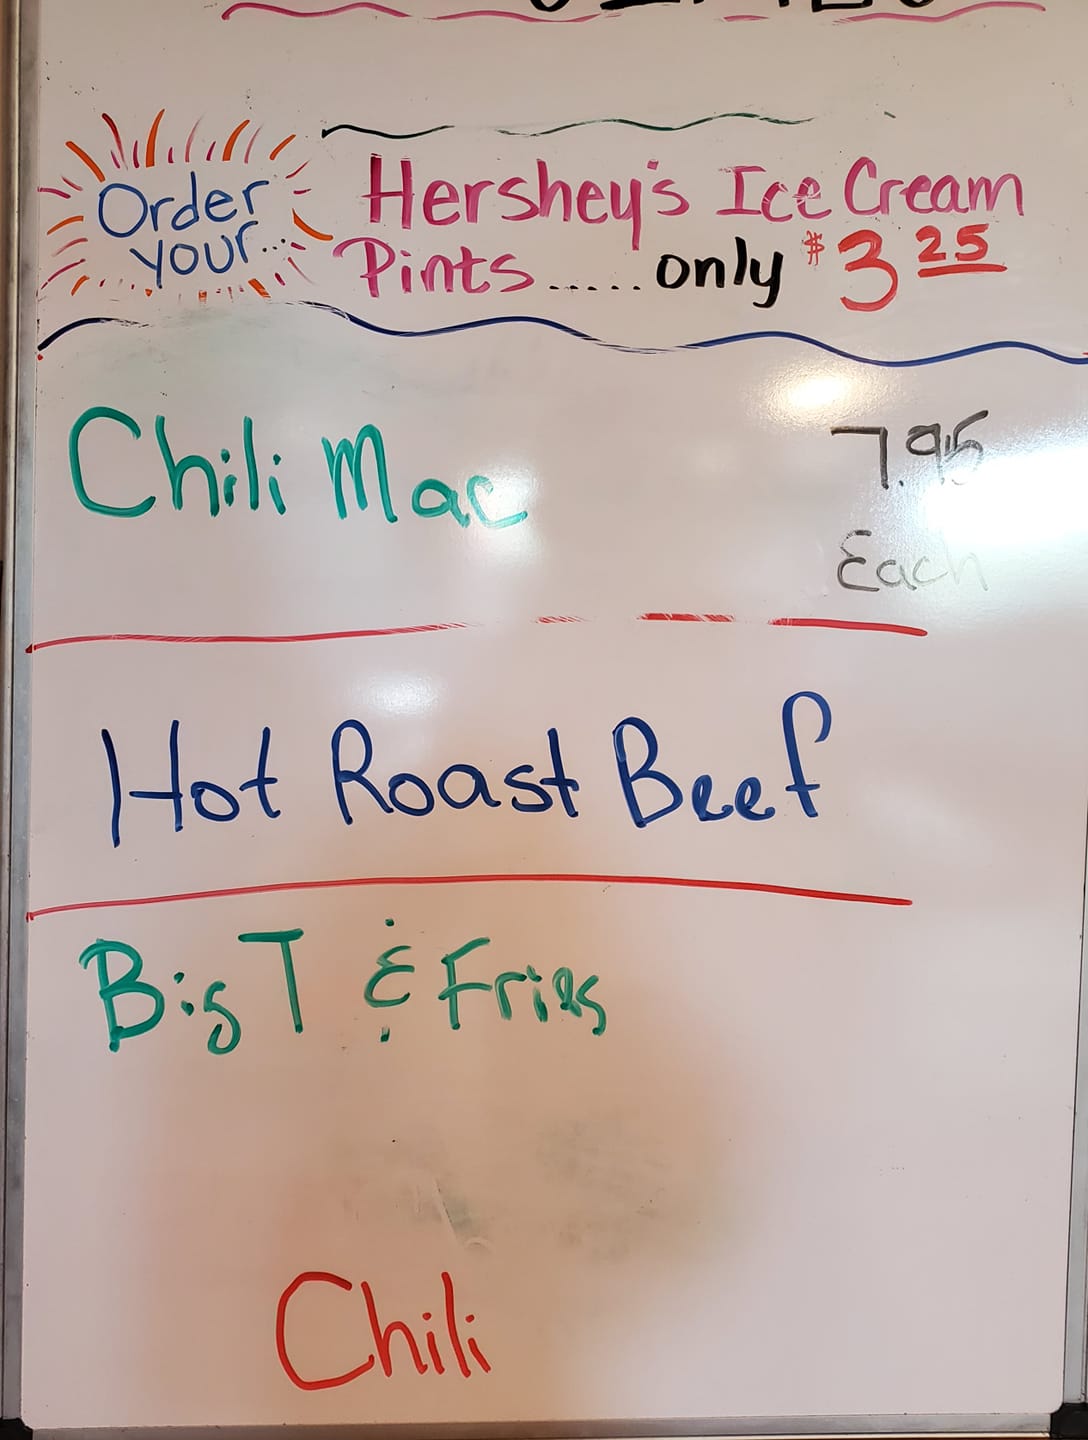 Order
your...
Hershey's Ice Cream
Pints..... only $3 25
Chili Mac 7.95
Each
Hot Roast Beef
Big T & Fries
Chili